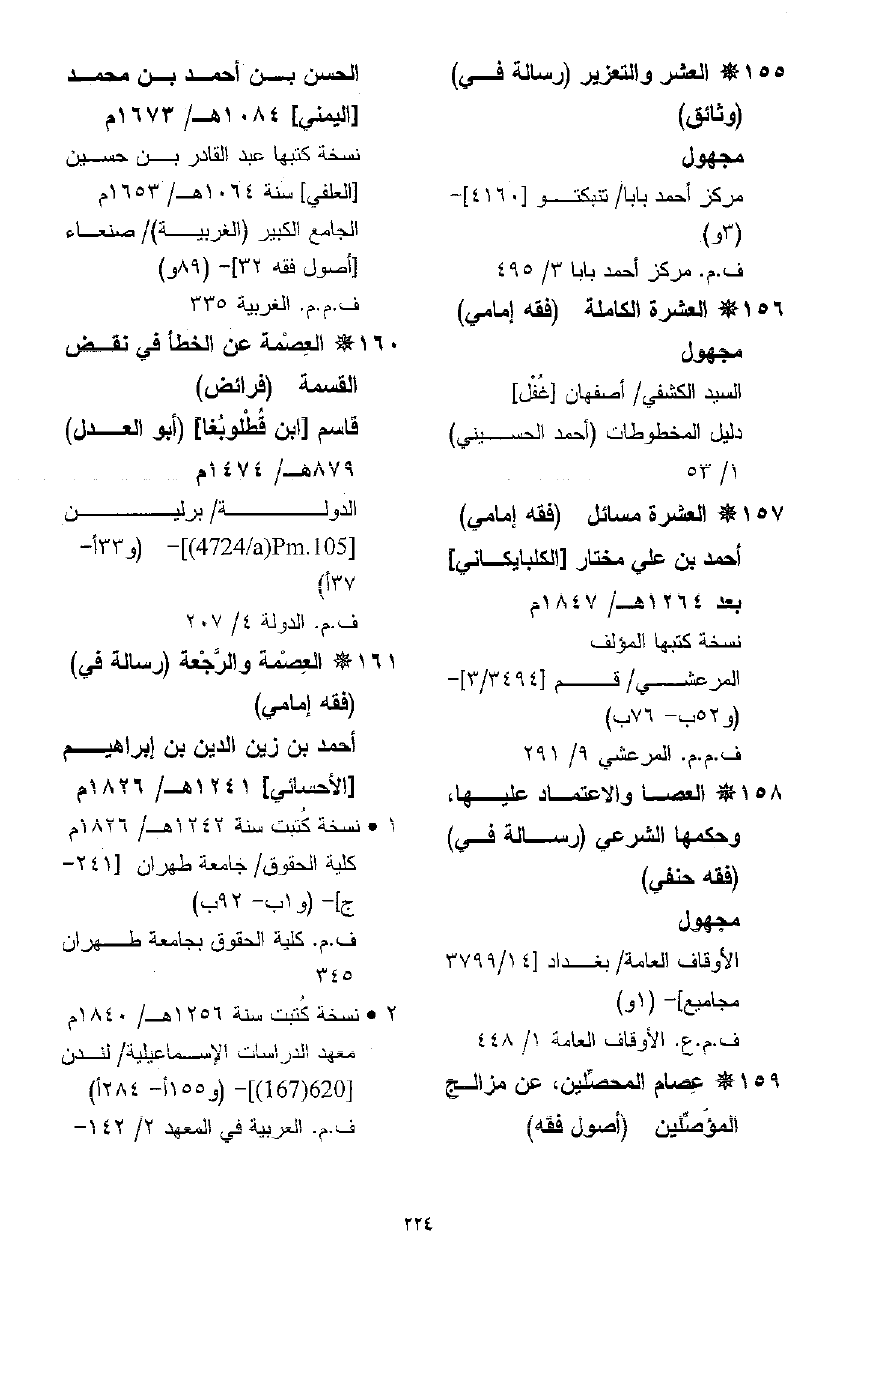 ١٥٥ ❋ العشر والتعزير (رسالة فـي)
(وثائق)
مجهول
مركز أحمد بابا/ تنبكتـو [٤١٦٠]-
(٣و)
ف.م. مركز أحمد بابا ٣/ ٤٩٥
١٥٦ ❋ العشرة الكاملة (فقه إمامي)
مجهول
السيد الكشفي/ أصفهان [غُفْل]
دليل المخطوطات (أحمد الحسـيني)
١/ ٥٣
١٥٧ ❋ العشرة مسائل (فقه إمامي)
أحمد بن علي مختار [الكلبايكـاني]
بعد ١٢٦٤هـ/ ١٨٤٧م
نسخة كتبها المؤلف
المرعشـي/ قـم [٣/٣٤٩٤]-
(و٥٢ب- ٧٦ب)
ف.م.م. المرعشي ٩/ ٢٩١
١٥٨ ❋ العصـا والاعتمـاد عليـها،
وحكمها الشرعي (رسـالة فـي)
(فقه حنفي)
مجهول
الأوقاف العامة/ بغـداد [٣٧٩٩/١٤
مجاميع]- (١و)
ف.م.ع. الأوقاف العامة ١/ ٤٤٨
١٥٩ ❋ عِصام المحصّلين، عن مزالـج
المؤَصِّلين (أصول فقه)
الحسن بـن أحمـد بـن محمـد
[اليمني] ١٠٨٤هـ/ ١٦٧٣م
نسخة كتبها عبد القادر بـن حسـين
[العلفي] سنة ١٠٦٤هـ/ ١٦٥٣م
الجامع الكبير (الغربيـة)/ صنعـاء
[أصول فقه ٣٢]- (٨٩و)
ف.م.م. الغربية ٣٣٥
١٦٠ ❋ العِصْمة عن الخطأ في نقـض
القسمة (فرائض)
قاسم [ابن قُطْلوبُغا] (أبو العـدل)
٨٧٩هـ/ ١٤٧٤م
الدولـة/ برليـن
[4724/a)Pm.105)]- (و٣٣أ-
٣٧أ)
ف.م. الدولة ٤/ ٢٠٧
١٦١ ❋ العِصْمة والرَّجْعة (رسالة في)
(فقه إمامي)
أحمد بن زين الدين بن إبراهيـم
[الأحسائي] ١٢٤١هـ/ ١٨٢٦م
١ • نسخة كُتبت سنة ١٢٤٢هـ/ ١٨٢٦م
كلية الحقوق/ جامعة طهران [٢٤١-
ج]- (و١ب- ٩٢ب)
ف.م. كلية الحقوق بجامعة طـهران
٣٤٥
٢ • نسخة كُتبت سنة ١٢٥٦هـ/ ١٨٤٠م
معهد الدراسات الإسـماعيلية/ لنـدن
[620(167)]- (و١٥٥أ- ٢٨٤أ)
ف.م. العربية في المعهد ٢/ ١٤٢-
٢٢٤